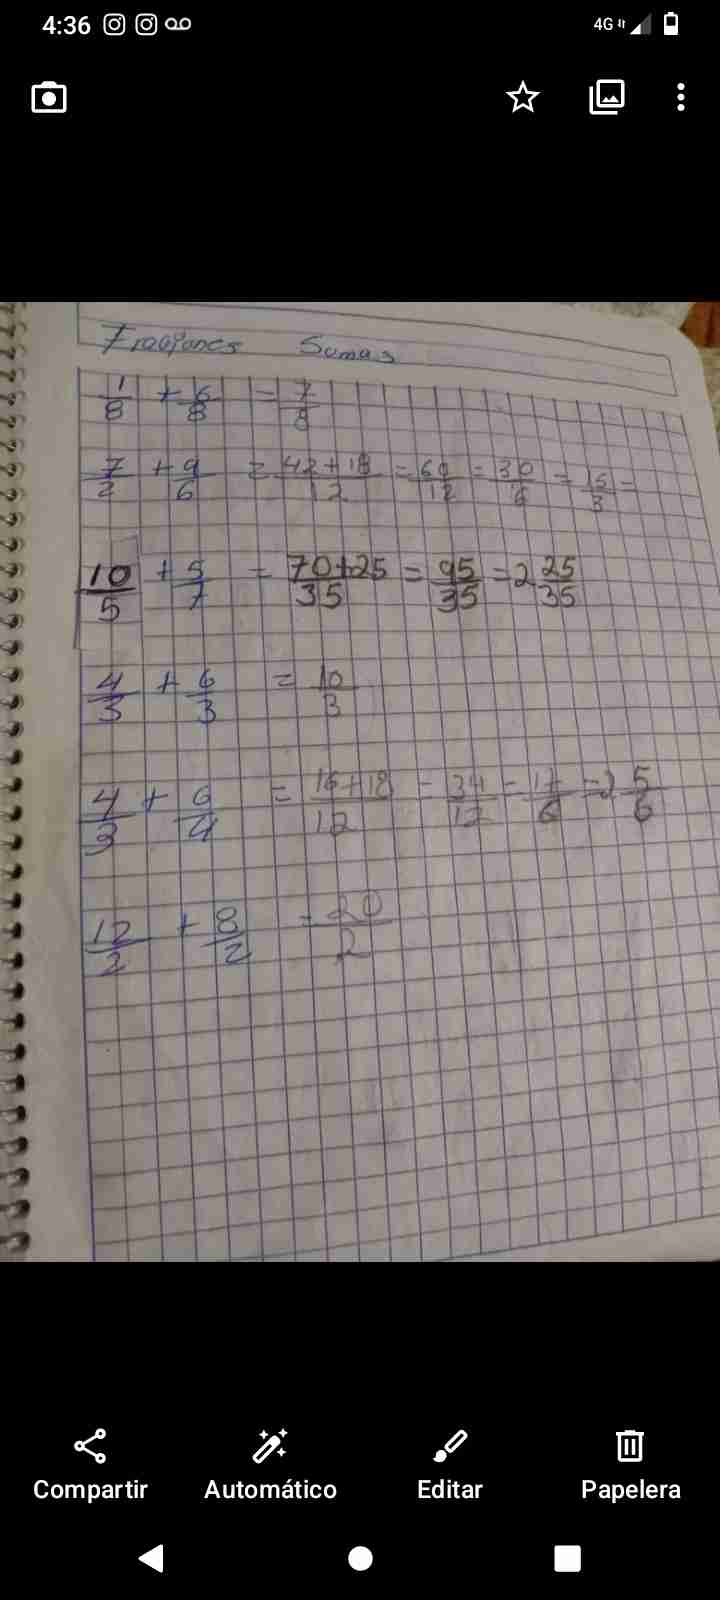 4:36 4G
Fracciones Sumas
1/8 + 6/8 = 7/8
7/2 + 9/6 = 42+18/12 = 60/12 = 30/6 = 15/3 =
10/5 + 5/7 = 70+25/35 = 95/35 = 2 25/35
4/3 + 6/3 = 10/3
4/3 + 6/4 = 16+18/12 = 34/12 = 17/6 = 2 5/6
12/2 + 8/2 = 20/2
Compartir Automático Editar Papelera